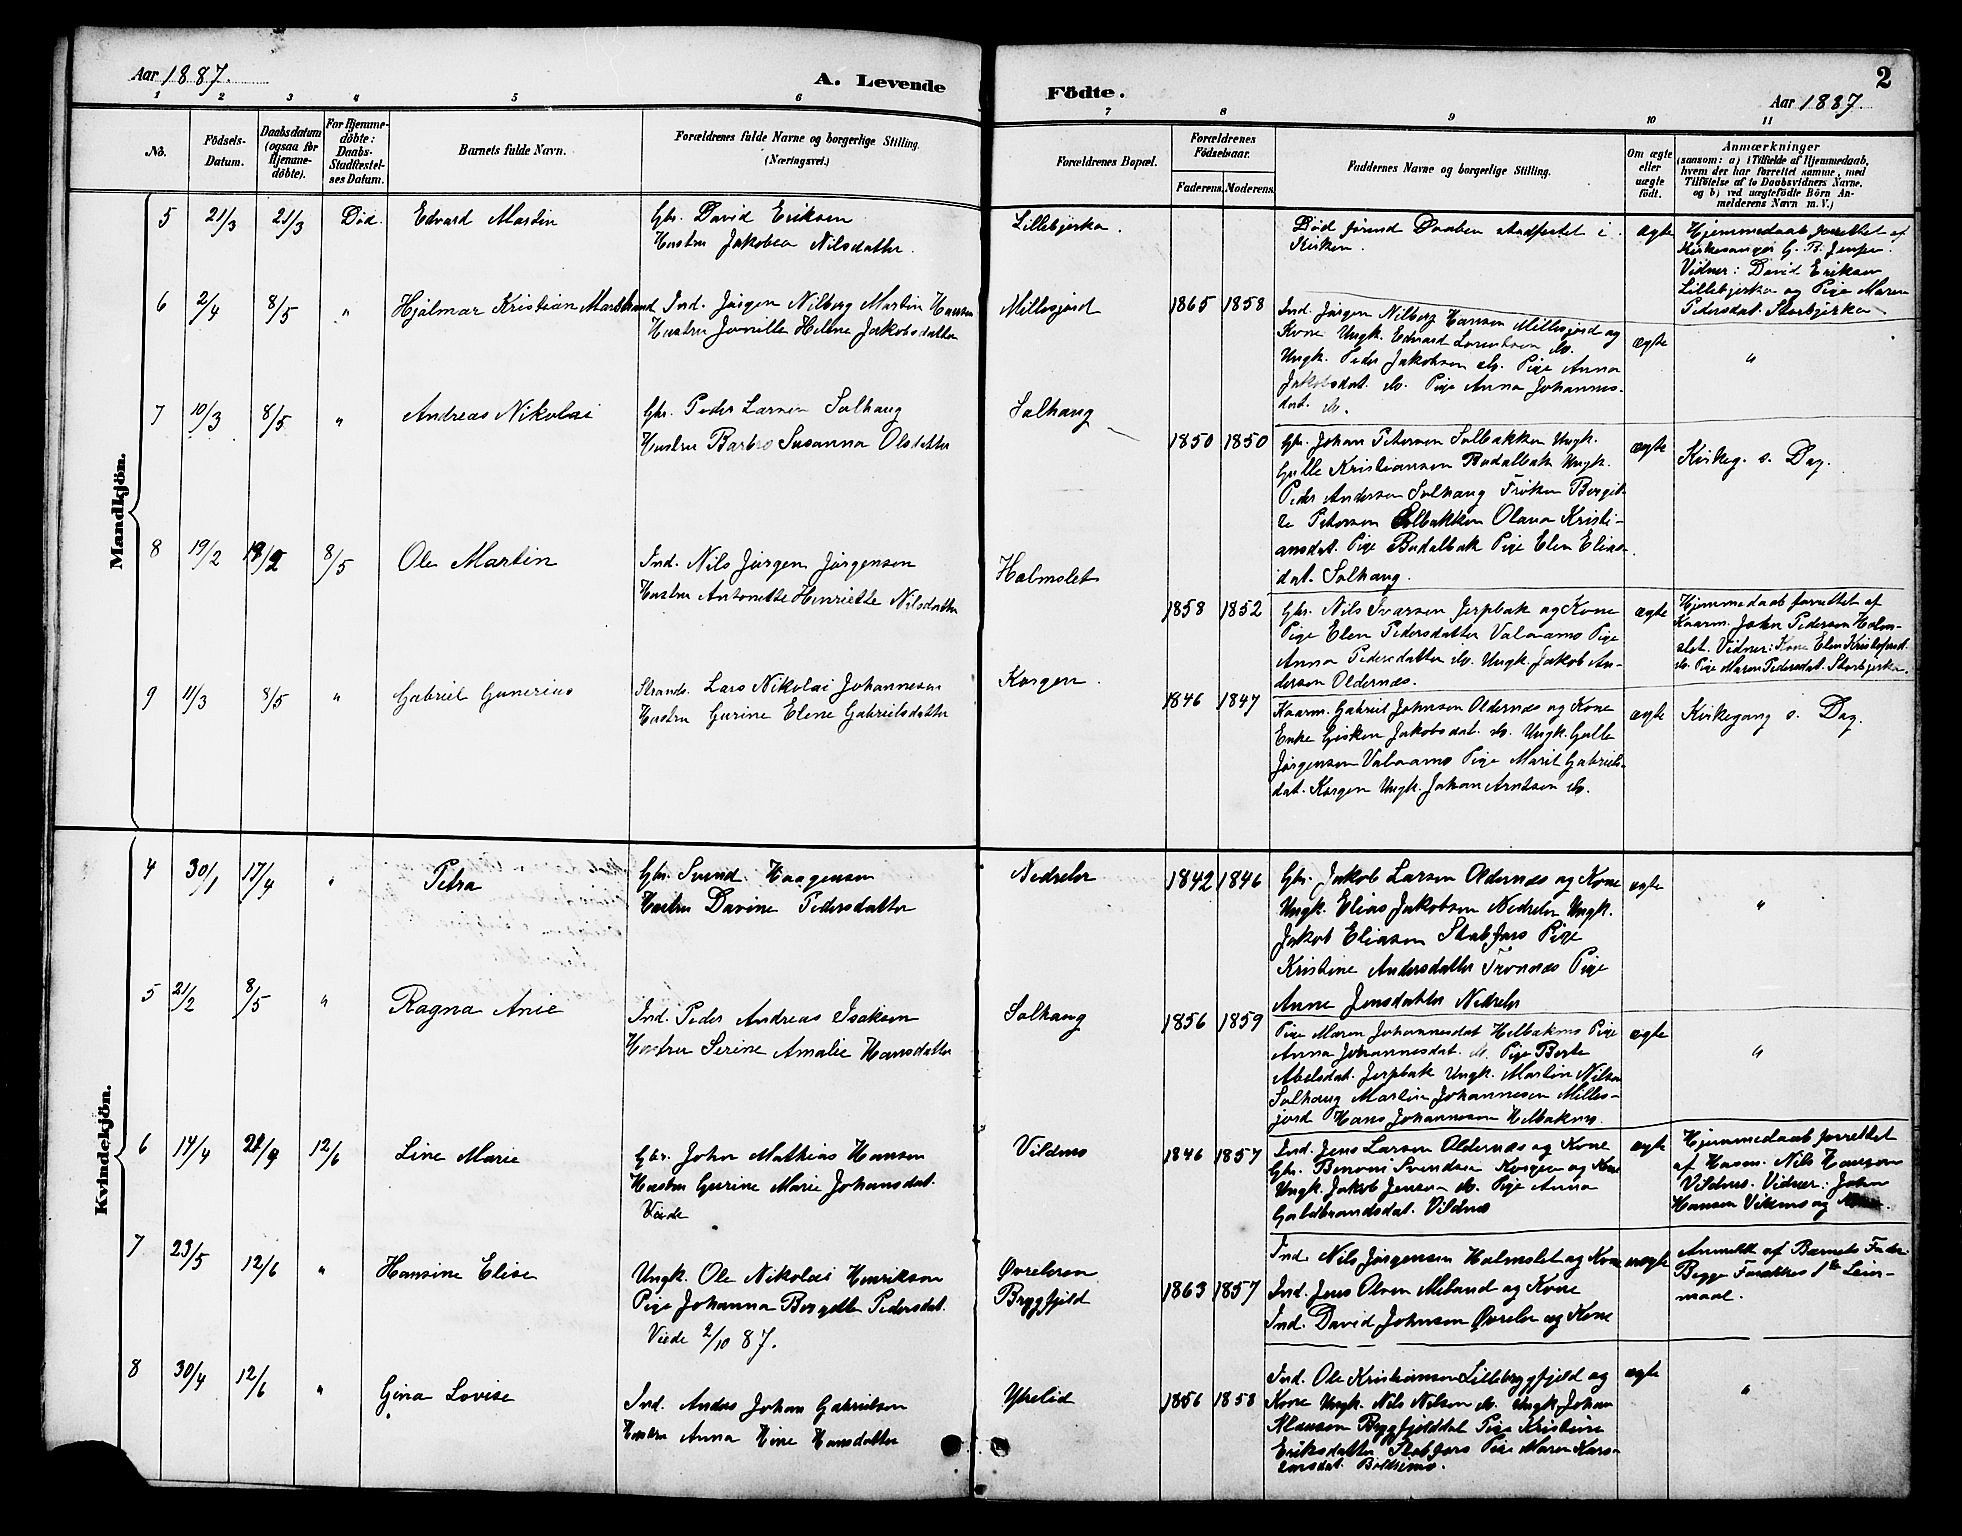 Aar 1887.
A. Levende
Födte.
Aar 1887.
2
1 2 3 4 5 6 7 8 9 10 11
Nö.
Födsels-Datum.
Daabsdatum (ogsaa för Hjemme-döbte).
For Hjemme-döbte: Daabs-Stadfæstel-ses Datum.
Barnets fulde Navn.
Forældrenes fulde Navne og borgerlige Stilling.
(Næringsvei.)
Forældrenes Bopæl.
Forældrenes Födselsaar.
Faderens. Moderens.
Faddernes Navne og borgerlige Stilling.
Om ægte eller uægte födt.
Anmærkninger
(saasom: a) i Tilfælde af Hjemmedaab,
hvem der har forrettet samme, med
Tilföielse af to Daabsvidners Navne.
og b) ved uægtefödte Börn An-
melderens Navn m. V.)
Mandkjön.
5 21/3 21/3 Död. Edvard Martin
Gbr. David Eriksen
Hustru Jakobea Nilsdatter.
Lillebjerka.
Död förend Daaben stadfestet i
Kirken.
ægte
Hjemmedaab forrettet af
Kirkesanger G. B. Jensen.
Vidner: David Eriksen
Lillebjerka og Pige Maren
Pedersdat. Storbjerka
6 2/4 8/5 " Hjalmar Kristian
Ind. Jörgen Nilberg Martin Hansen
Hustru Jonille Helene Jakobsdatter
Millesjord
1865 1858
Ind. Jörgen Nilberg Hansen Millesjord og
Kone Ungk. Edvard Lorentsen do.
Ungk. Peder Jakobsen do. Pige Anna
Jakobsdat. do. Pige Anna Johannes-
dat. do.
ægte
"
7 10/3 8/5 " Andreas Nikolai
Gbr. Peder Larsen Solhaug
Hustru Barbro Susanna Olsdatter
Solhaug
1850 1850
Gbr. Johan Petersen Solbakken Ungk.
Gulle Kristiansen Budalbak Ungk.
Peder Andersen Solhaug Fröken Bergit-
te Petersen Solbakken Olava Kristi-
ansdat. Pige Budalbak Pige Elen Elias-
dat. Solhaug.
ægte
Kirkeg. s. Dag.
8 19/2 8/5 Ole Martin
Ind. Nils Jörgen Jörgensen
Hustru Antonette Henriette Nilsdatter
Holmslet
1858 1852
Gbr. Nils Ivarsen Jerpbak og Kone
Pige Elen Pedersdatter Valaamo Pige
Anna Pedersdatter do. Ungk. Jakob An-
dersen Oldernæs.
ægte
Hjemmedaab forrettet af
Kaarm. John Pedersen Holm-
slet. Vidner: Kone Elen Kristofersd.
do. Pige Maren Pedersdat. Storbjerka.
9 11/3 8/5 " Gabriel Gunerius
Strands. Lars Nikolai Johannesen
Hustru Gurine Elene Gabrielsdatter
Korgen.
1846 1847
Kaarm. Gabriel Johnsen Oldernæs og Kone
Enke Gisken Jakobsdat. do. Ungk. Gulle
Jörgensen Valaamo Pige Marit Gabriels-
dat. Korgen Ungk. Johan Arntsen do.
ægte
Kirkegang s. Dag.
Kvindekjön.
4 30/1 17/4 " Petra
Gbr. Svend Haagensen
Hustru Davine Pedersdatter
Nedreler
1842 1846
Gbr. Jakob Larsen Oldernæs og Kone
Ungk. Elias Jakobsen Nedreler Ungk.
Jakob Eliasen Stabfors Pige
Kristine Andersdatter Fronæs Pige
Anne Jensdatter Nedreler
ægte
"
5 21/2 8/5 " Ragna Anie
Ind. Peder Andreas Isaksen
Hustru Serine Amalie Hansdatter
Solhaug
1856 1859
Pige Maren Johannesdat Helbakmo Pige
Anna Johannesdat. do. Pige Berte
Abelsdat. Jerpbak Ungk. Martin Nilsen
Solhaug Martin Johannesen Milles-
jord Hans Johannesen Helbakmo.
ægte
"
6 14/4 12/6 Line Marie
Gbr. John Mathias Hansen
Hustru Gurine Marie Johansdat.
Viede
Vildmo
1846 1857
Ind. Jens Larsen Oldernæs og Kone
Gbr. Benoni Svendsen Korgen og Kone
Ungk. Jakob Jensen do. Pige Anna
Guldbrandsdat. Vildmo
ægte
Hjemmedaab forrettet
af Husm. Nils Haugen
Vildmo. Vidner: John
Hansen Vildmo og Kone.
7 23/5 12/6 " Hansine Elise
Ungk. Ole Nikolai Henriksen
Pige Johanna Bergitte Pedersdat.
Viede 2/10 87.
Övreleren
Brygfjeld
1863 1857
Ind. Nils Jörgensen Holmslet og Kone
Ind. Jens Olsen Moland og Kone
Ind. David Johnsen Övreler og Kone
uægte
Anmeldt af Barnets Fader
Begge Forældres 1ste Leier-
maal.
8 30/4 12/6 " Gina Lovise
Ind. Anders Johan Gabrielsen
Hustru Anna Hansdatter
Ytrelid
1856 1858
Ind. Ole Kristiansen Lillebrygfjeld og
Kone Ungk. Nils Nilsen do. Ungk. Johan
Klausen Brygfjelddal Pige Kristine
Eriksdatter Stabfors Pige Maren
ægte
"